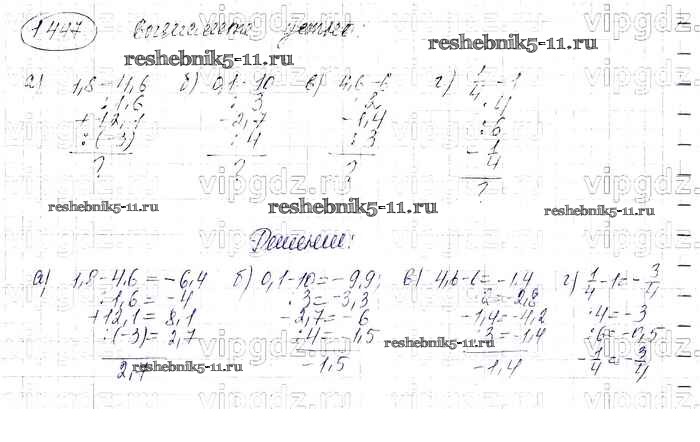 1447 Вычислите устно:
reshebnik5-11.ru
reshebnik5-11.ru
а) 1,8-4,6 б) 0,1-10 в) 4,6-6 г) 1/4 - 1
:1,6 : 3 · 2 · 4
+12,1 -2,7 -1,4 :6
:(-3) : 4 : 3 - 1/4
? ? ? ?
reshebnik5-11.ru
reshebnik5-11.ru
reshebnik5-11.ru
Решение:
а) 1,8-4,6=-6,4 б) 0,1-10=-9,9; в) 4,6-6=-1,4 г) 1/4-1=-3/4
:1,6=-4 :3=-3,3 ·2=-2,8 ·4=-3
+12,1=8,1 -2,7=-6 -1,4=-4,2 :6=-0,5
:(-3)=2,7 :4=1,5 :3=-1,4 -1/4=-3/4
2,7 -1,5 -1,4
reshebnik5-11.ru
reshebnik5-11.ru
vipgdz.ru